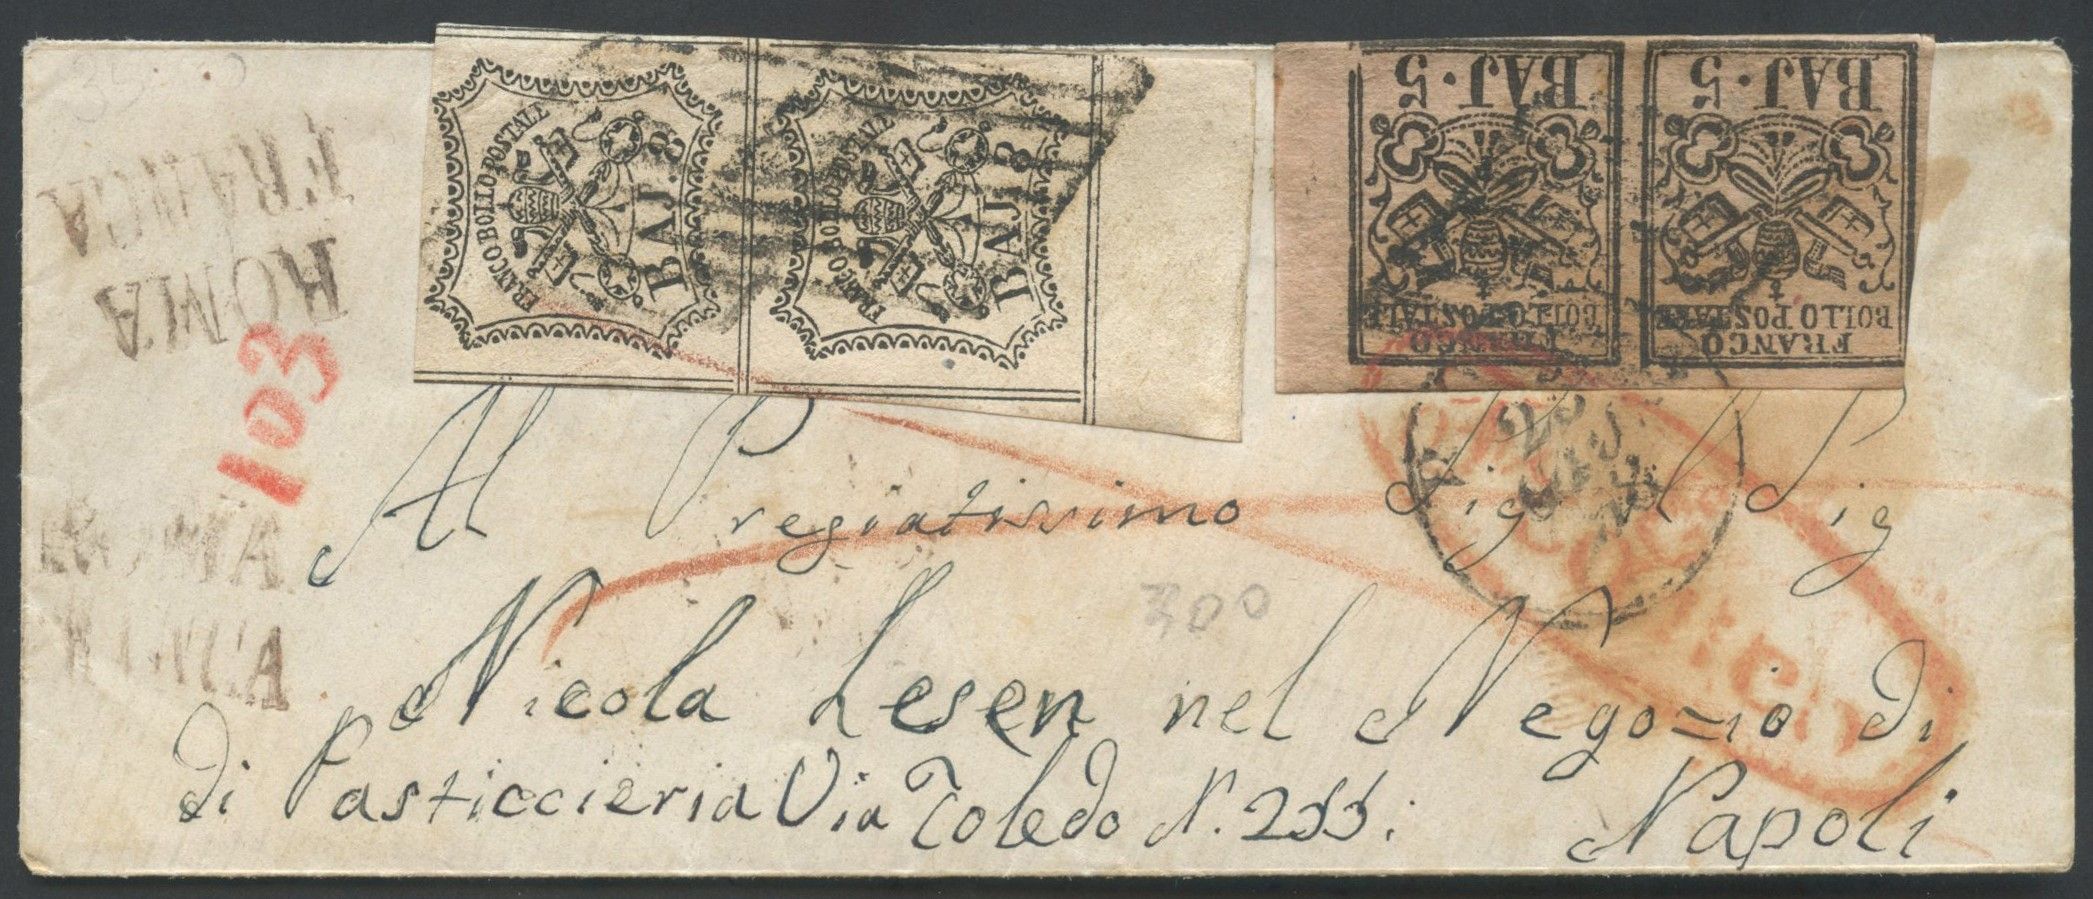 FRANCO BOLLO POSTALE
BAJ. 8
FRANCO BOLLO POSTALE
BAJ. 8
BAJ. 5
FRANCO
BOLLO POSTALE
BAJ. 5
FRANCO
BOLLO POSTALE
FRANCA
ROMA
103
ROMA
300
Al Pregiatissimo Sig Il Sig
Nicola Lesen nel Negozio di
di Pasticcieria Via Toledo N. 255.
Napoli